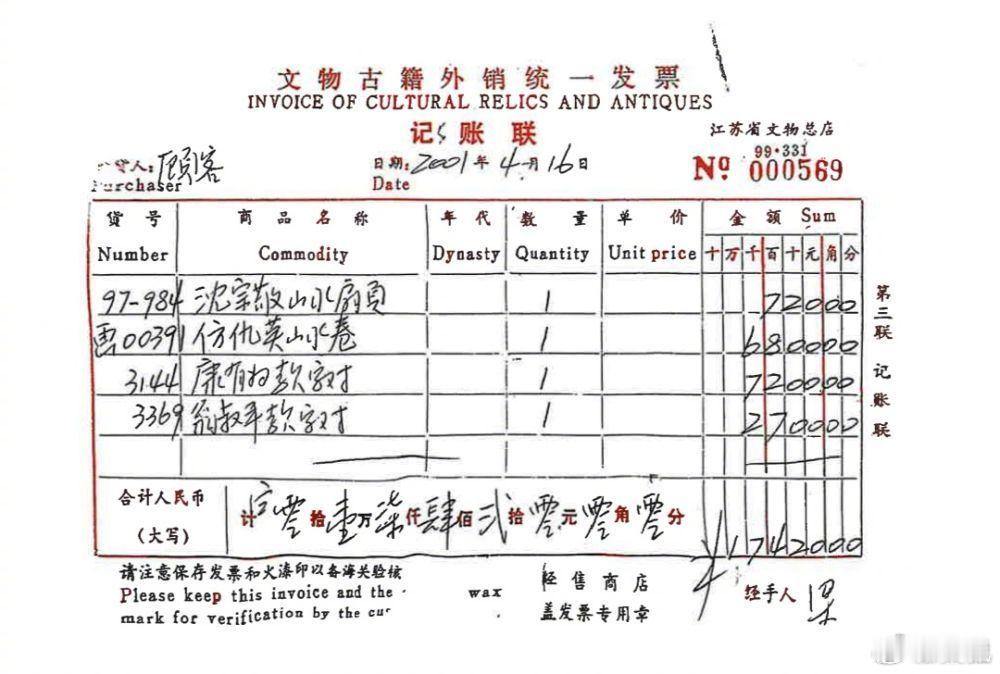 文物古籍外销统一发票
INVOICE OF CULTURAL RELICS AND ANTIQUES
记账联
江苏省文物总店
货人:顾客
Purchaser
日期:2001年4月16日
Date
99·331
Nº 000569
货号 商品名称 年代 数量 单价 金额 Sum
Number Commodity Dynasty Quantity Unit price 十万千百十元角分
97-984 沈宗敬山水扇页 1 72000
画00391 仿仇英山水卷 1 680000
3144 康有为款字对 1 720000
3369 翁叔平款字对 1 270000
合计人民币
(大写)
计零拾壹万柒仟肆佰贰拾零元零角零分
¥1742000
第三联 记账联
请注意保存发票和火漆印以备海关验核
Please keep this invoice and the wax
mark for verification by the cus
经售商店
盖发票专用章
经手人 梁